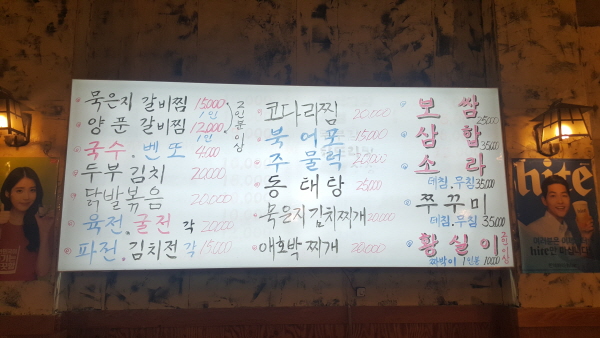 묵은지 갈비찜 15,000
1인
양푼 갈비찜 12,000
1인
2인분이상
국수. 벤또 4,000
두부 김치 20,000
닭발볶음 20,000
육전.굴전 각 20,000
파전.김치전 각 15,000
코다리찜 20,000
북어포 15,000
주물럭 20,000
동태탕 25,000
묵은지김치찌개 20,000
애호박찌개 20,000
보쌈 25,000
삼합 35,000
소라
데침.무침 35,000
쭈꾸미
데침.무침 35,000
황실이
짜박이 1인분 10,000
hite